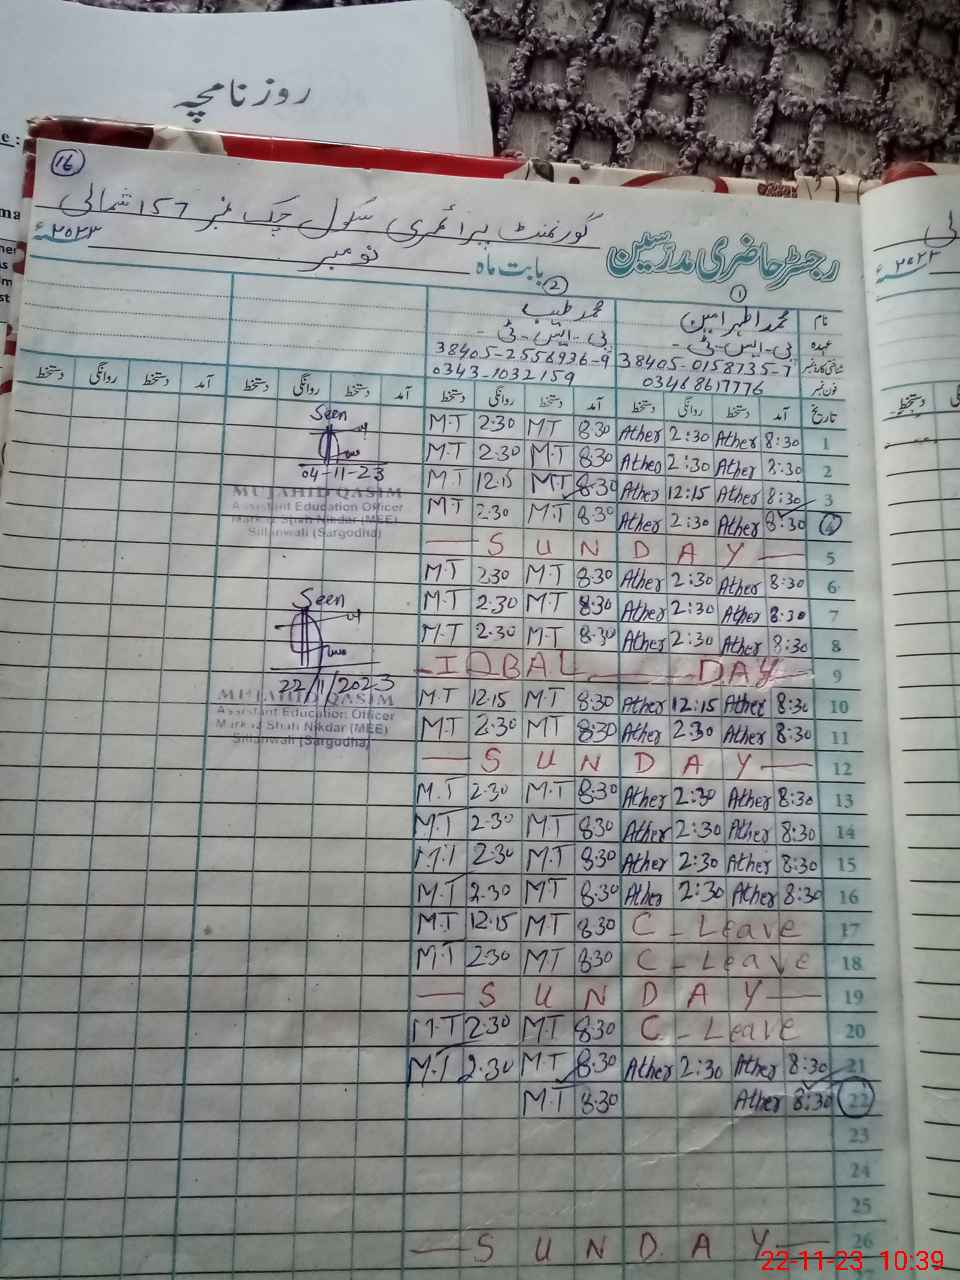 روزنامچہ
16
گورنمنٹ پرائمری سکول چک نمبر 157 شمالی
رجسٹر حاضری مدرسین
بابت ماہ نومبر ۲۰۲۳ء
① ②
نام محمد اطہر امین محمد طیب
عہدہ پی-ایس-ٹی- پی-ایس-ٹی-
شناختی کارڈ نمبر 38405-0158735-7 38405-2556936-9
فون نمبر 03468617776 0343-1032159
تاریخ آمد دستخط روانگی دستخط آمد دستخط روانگی دستخط آمد دستخط روانگی دستخط آمد دستخط روانگی دستخط
M.T 2.30 M.T 8.30 Ather 2:30 Ather 8:30 1
M.T 2.30 M.T 8.30 Ather 2:30 Ather 8:30 2
M.T 12.15 M.T 8.30 Ather 12:15 Ather 8:30 3
M.T 2.30 M.T 8.30 Ather 2:30 Ather 8:30 4
S U N D A Y 5
M.T 2.30 M.T 8.30 Ather 2:30 Ather 8:30 6
M.T 2.30 M.T 8.30 Ather 2:30 Ather 8:30 7
M.T 2.30 M.T 8.30 Ather 2:30 Ather 8:30 8
IQBAL DAY 9
M.T 12.15 M.T 8.30 Ather 12:15 Ather 8:30 10
M.T 2.30 M.T 8.30 Ather 2:30 Ather 8:30 11
S U N D A Y 12
M.T 2.30 M.T 8.30 Ather 2:30 Ather 8:30 13
M.T 2.30 M.T 8.30 Ather 2:30 Ather 8:30 14
M.T 2.30 M.T 8.30 Ather 2:30 Ather 8:30 15
M.T 2.30 M.T 8.30 Ather 2:30 Ather 8:30 16
M.T 12.15 M.T 8.30 C - Leave 17
M.T 2.30 M.T 8.30 C - Leave 18
S U N D A Y 19
M.T 2.30 M.T 8.30 C - Leave 20
M.T 2.30 M.T 8.30 Ather 2:30 Ather 8:30 21
M.T 8.30 Ather 8:30 22
23
24
25
S U N D A Y 26
Seen
04-11-23
MUJAHID QASIM
Assistant Education Officer
Markaz Shah Nikdar (MEE)
Sillanwali (Sargodha)
Seen
22/11/2023
MUJAHID QASIM
Assistant Education Officer
Markaz Shah Nikdar (MEE)
Sillanwali (Sargodha)
۲۰۲۳ء
دستخط
22-11-23 10:39